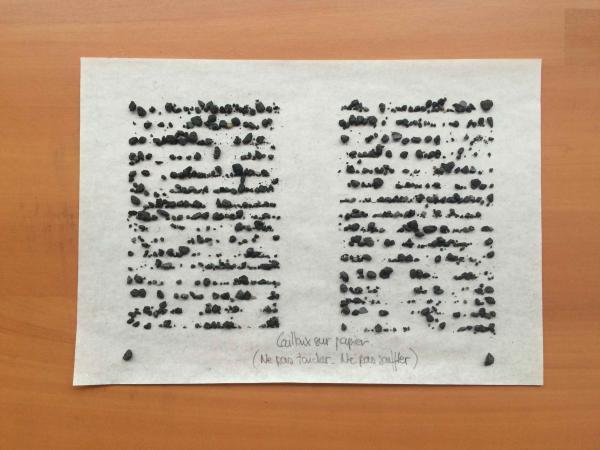 Cailloux sur papier
(Ne pas toucher_ Ne pas souffler)